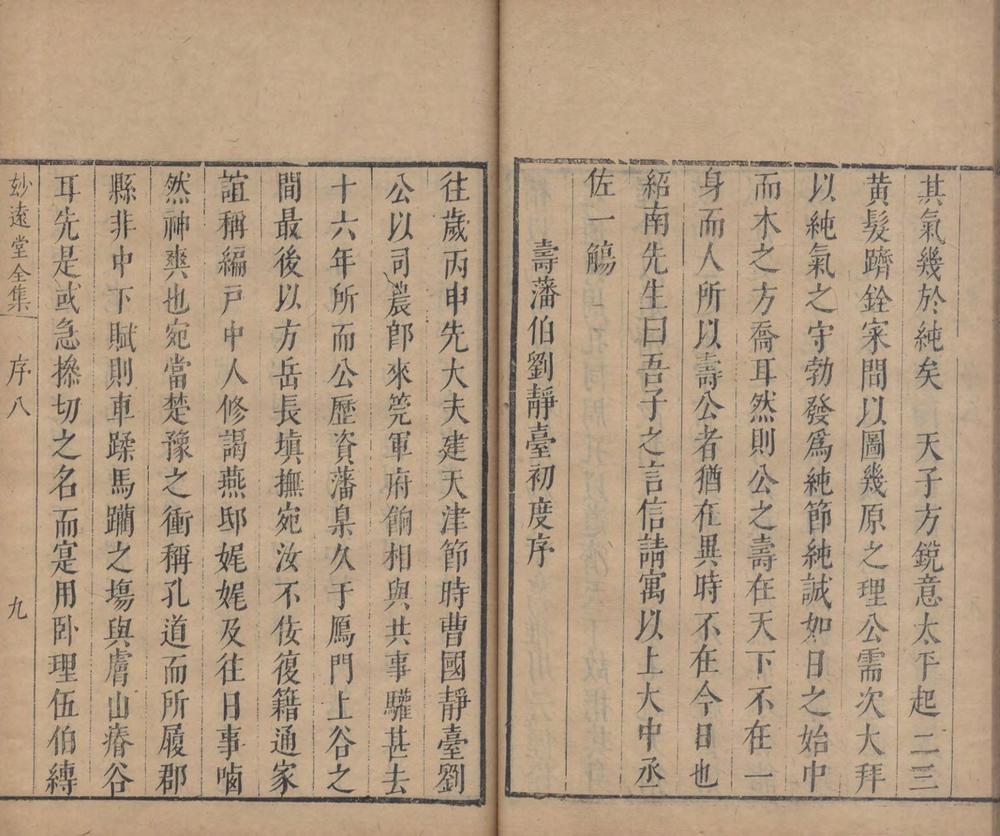 其氣幾於純矣　天子方銳意太平起二三
黃髮躋銓宰問以圖幾原之理公需次大拜
以純氣之守勃發爲純節純誠如日之始中
而木之方喬耳然則公之壽在天下不在一
身而人所以壽公者猶在異時不在今日也
紹南先生曰吾子之言信請寓以上大中丞
佐一觴
壽藩伯劉靜臺初度序
往歲丙申先大夫建天津節時曹國靜臺劉
公以司農郎來筦軍府餉相與共事驩甚去
十六年所而公歷資藩臬久于鴈門上谷之
間最後以方岳長塡撫宛汝不佞復籍通家
誼稱編戸中人修謁燕邸娓娓及往日事嗑
然神爽也宛當楚豫之衝稱孔道而所履郡
縣非中下賦則車蹂馬躪之塲與膚山瘠谷
耳先是或急摻切之名而寔用卧理伍伯縳
玅遠堂全集　序八　九